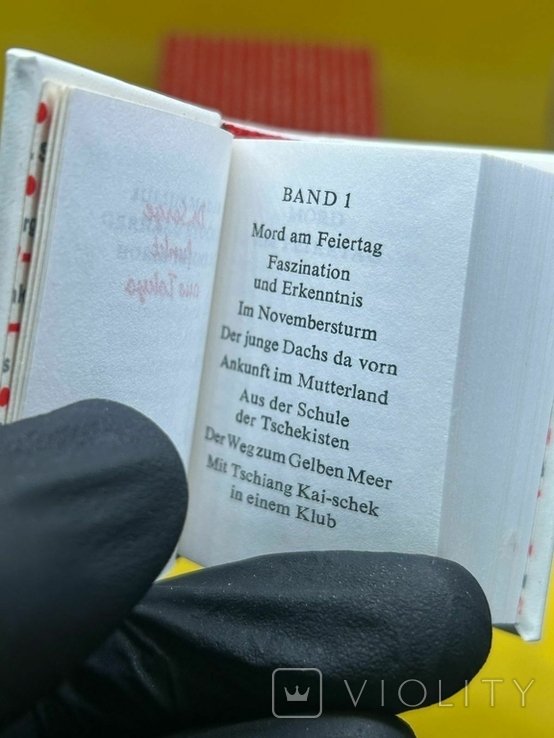 BAND 1
Mord am Feiertag
Faszination
und Erkenntnis
Im Novembersturm
Der junge Dachs da vorn
Ankunft im Mutterland
Aus der Schule
der Tschekisten
Der Weg zum Gelben Meer
Mit Tschiang Kai-schek
in einem Klub
VIOLITY